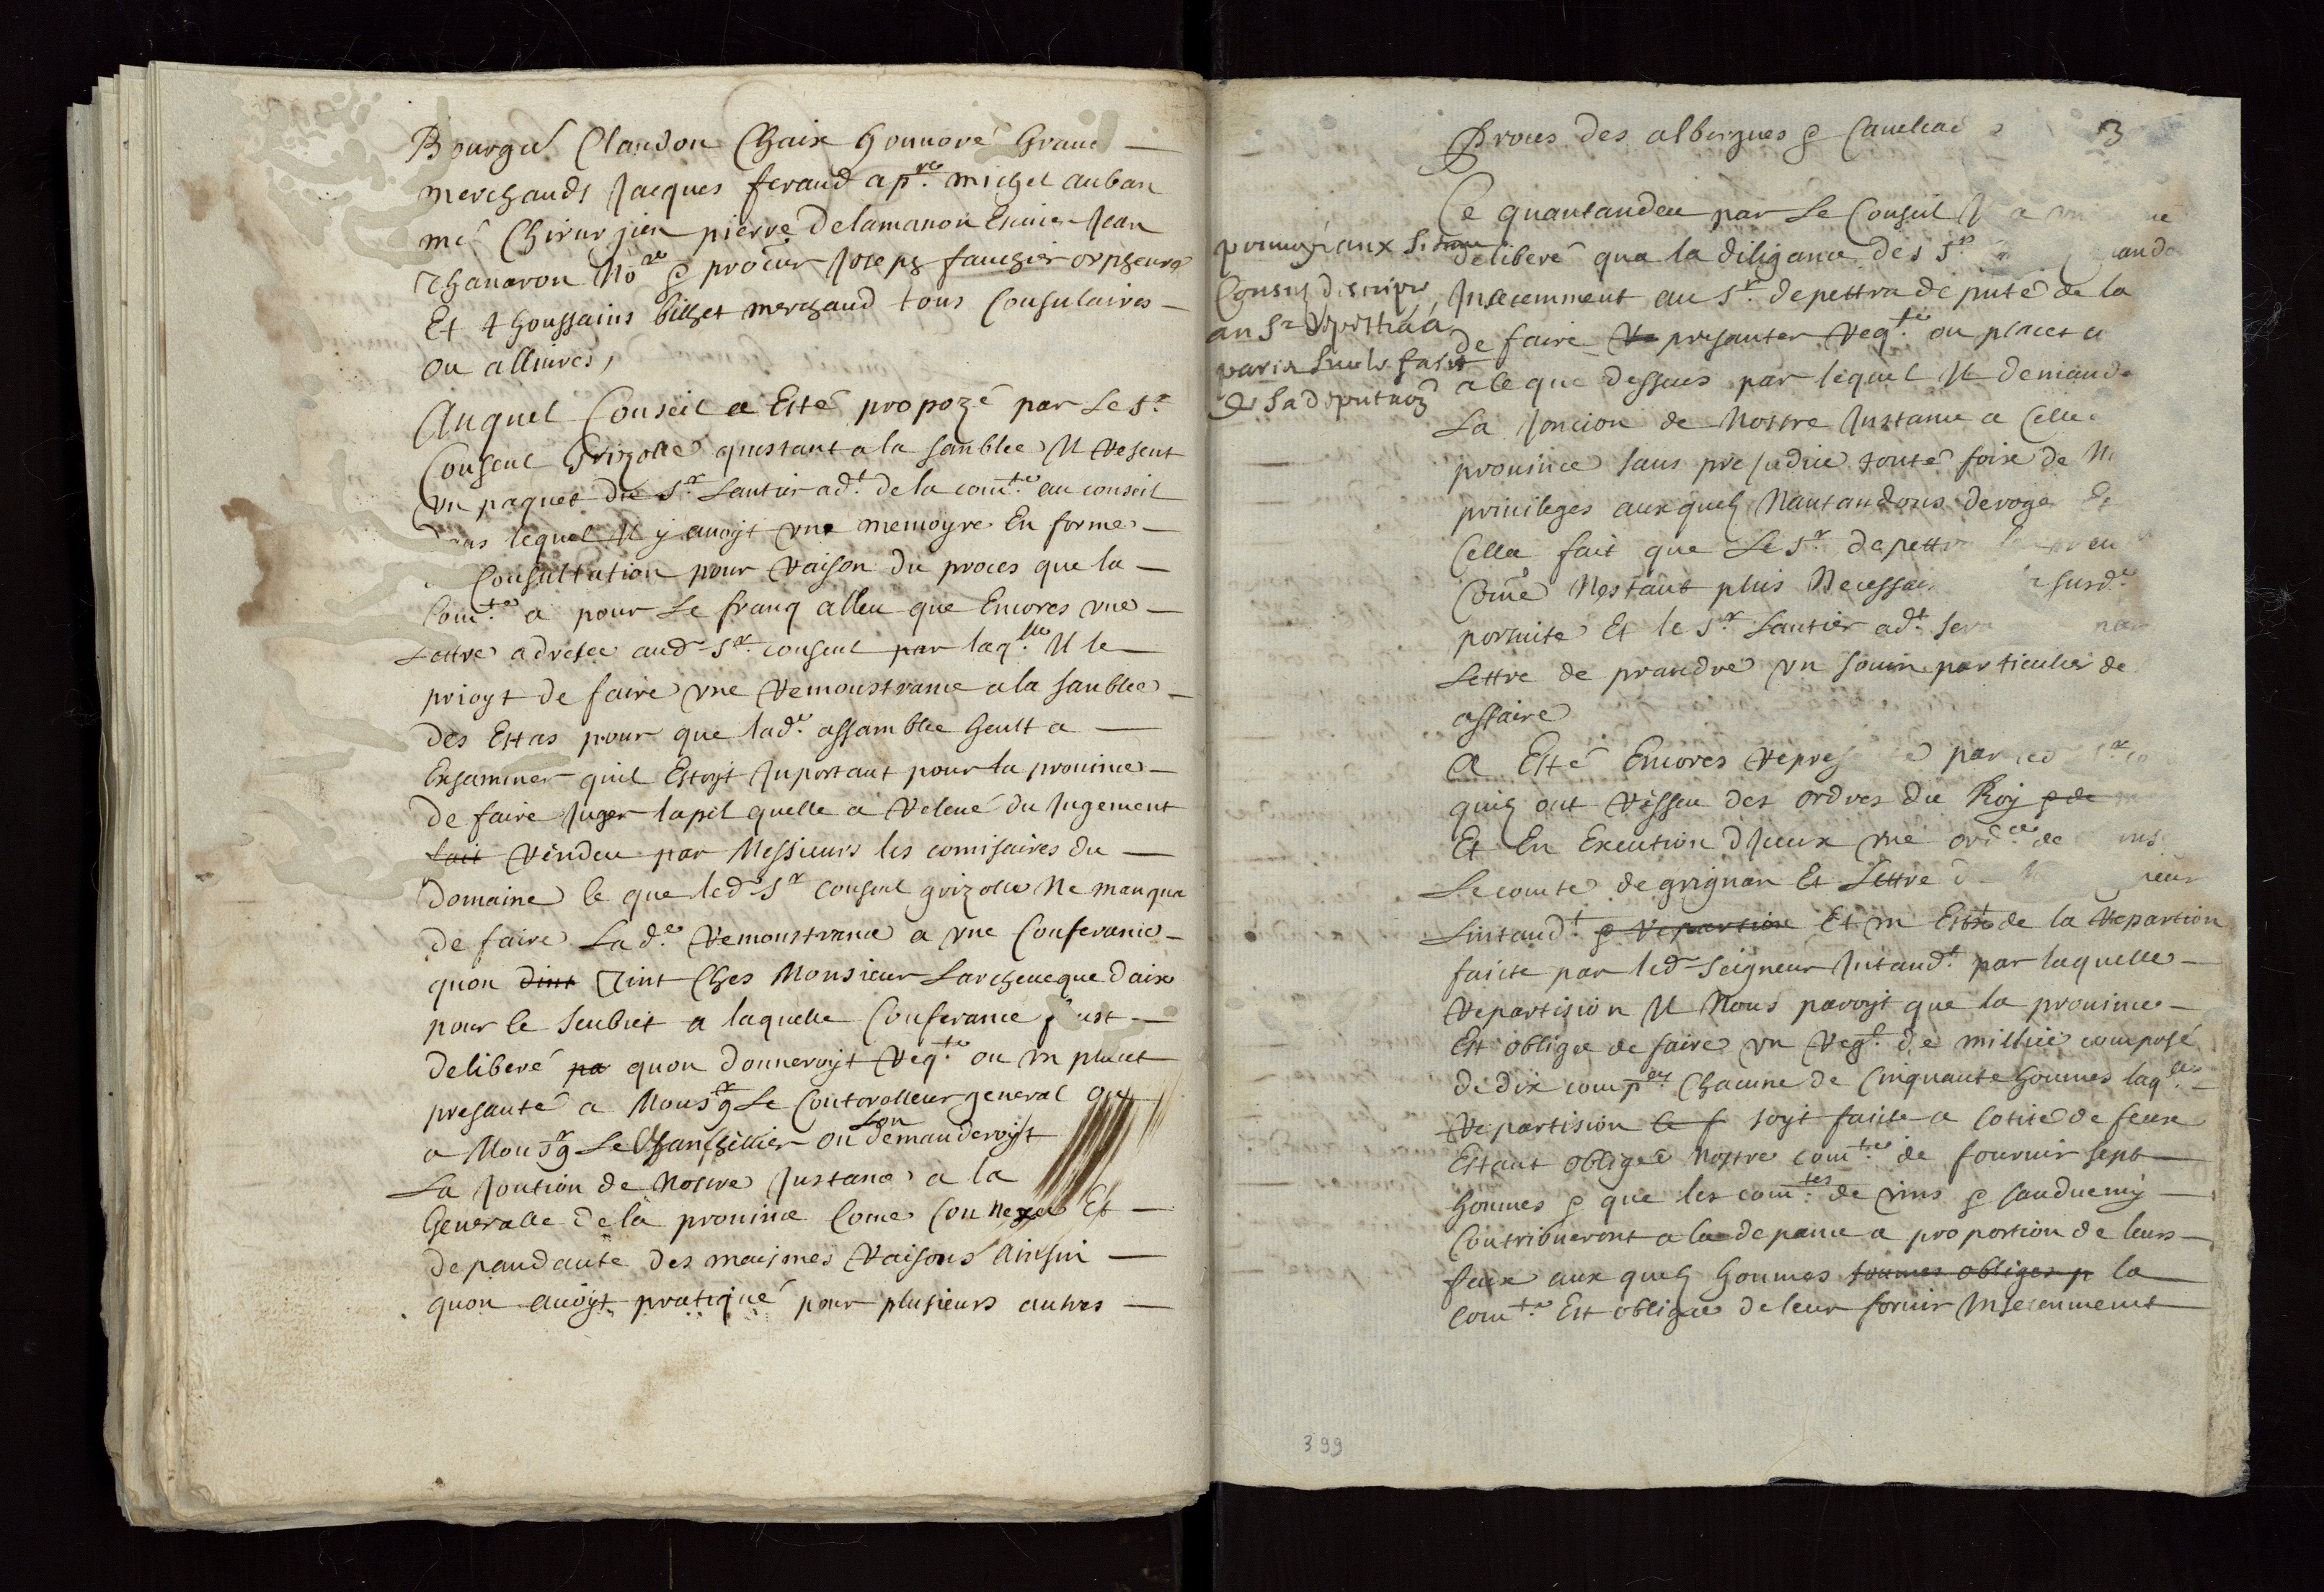 Bourges Claudon Chaix honnoré Graue
merchands Jacques feraud apre. michel auban
me Chirurjien pierre Delamanon Escuier Jean
Chanaron No.re & procur Joseph fauchier orpheure
Et thoussains bilhet merchand tous Consulaires
ou alliures,
Auquel Conseil a Esté propozé par Le Sr
Consul Grizolle questant a la sanblee Il Resent
Vn paquet du Sr. Lautier adt. de la comte. au conseil
dans lequel Il y avoyt vne memoyre En forme
Consultation pour Raison du proces que la
Comte. a pour Le franq alleu que Encores vne
Lettre adresee aud Sr. consul par laqlle. Il le
prioyt de faire vne Remoustrance a la sanblee
des Estas pour que lade. assamblee heult a
Exsaminer quil Estoyt Inportant pour la prouince
de faire Juger lapel quelle a Releué du Jugement
fait Rendeu par Messieurs les comisaires du
Domaine le que led Sr consul grizolle Ne manqua
de faire Lade. Remoustrance a vne Conferance
quon dint Tint Ches Monsieur Larcheueque daix
pour le seubiet a laquelle Conferance fust
deliberé pa quon donneroyt Reqte. ou vn placet
presanté a Monsgr Le Controlleur general ou
a Monsgr Le Chanselier ou lon demanderoyt
La Jontion de Nostre Instance a la
Generalle de la prouince Come Connexe Et
depandante des maismes Raisons Ainsin
quon avoyt pratiqué pour plusieurs autres
Proces des albergues & Caualcad 3
Ce quantandeu par Le Consul Il a
deliberé qua la diligance des Srs
Insecemment au Sr. depettra depute de la
de faire Re presanter Reqte. ou placet a
a leque dessus par lequel Il demande
La Joncion de Nostre Instance a Celle
prouince sans prejudice toute foix de
priuileges auxquels Nantandons deroger Et
Cella fait que Le Sr depettra
Come Nestant plus Necessai susde
porsuite Et le Sr Lautier adt. sera par
Lettre de prandre vn souin particulier de
affaire
prumozi aux Srs
Consuls descripre
au Sr depettra a
paris sur le fait
de sa deputaon
A Esté Encores Repres par led Sr
quils ont Ressu des ordres du Roy & de
Et En Execution dJceux vne ordce. de
Le comte de grignan Et Lettre
Lintandt. & Repartion Et vn Esttt de la Repartion
faicte par led Seigneur Intandt. par laquelle
Repartision Il Nous paroyt que la prouince
Est obligee de faire vn Regt. de millice composé
de dix compes. Chacune de Cinquante hommes laqlle.
Repartision le f soyt faicte a cotite de feux
Estant obligee Nostre comte. de fournir sept
hommes & que les comtes. de vins & sauduemy
Contribueront a la depance a proportion de leurs
feux aux quels hommes soumes obliges p la
comte. Est obligee de leur fornir Insecenment
399